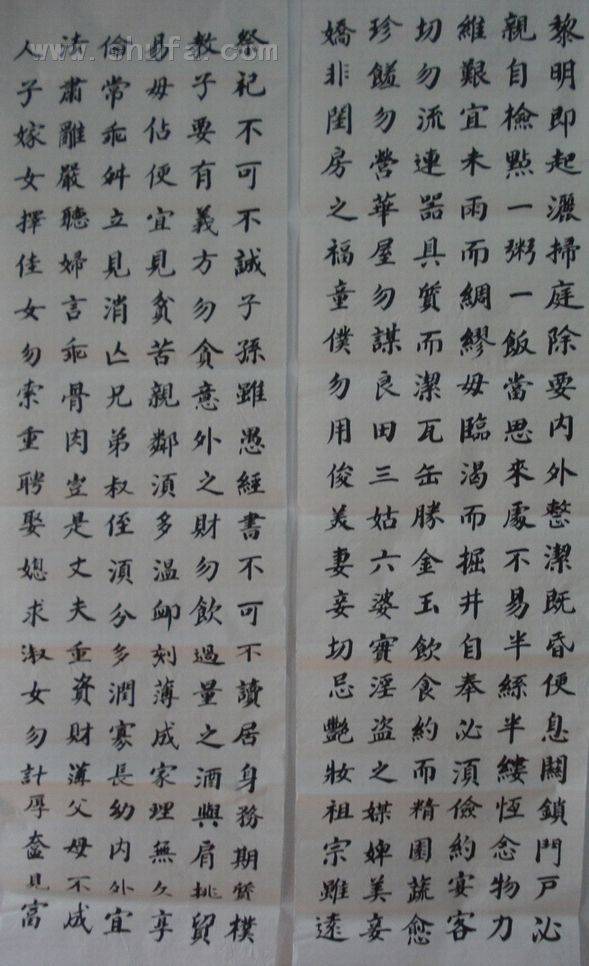 www.shufa.com
黎明即起灑掃庭除要内外整潔既昏便息關鎖門戸必
親自檢點一粥一飯當思來處不易半絲半縷恆念物力
維艱宜未雨而綢繆毋臨渴而掘井自奉必須儉約宴客
切勿流連器具質而潔瓦缶勝金玉飲食約而精園蔬愈
珍饈勿營華屋勿謀良田三姑六婆實淫盜之媒婢美妾
嬌非閨房之福童僕勿用俊美妻妾切忌艷妝祖宗雖遠
祭祀不可不誠子孫雖愚經書不可不讀居身務期質樸
教子要有義方勿貪意外之財勿飲過量之酒與肩挑貿
易毋佔便宜見貧苦親鄰須多溫卹刻薄成家理無久享
倫常乖舛立見消亡兄弟叔侄須分多潤寡長幼内外宜
法肅離嚴聽婦言乖骨肉豈是丈夫重資財薄父母不成
人子嫁女擇佳女勿索重聘娶媳求淑女勿計厚奩見富